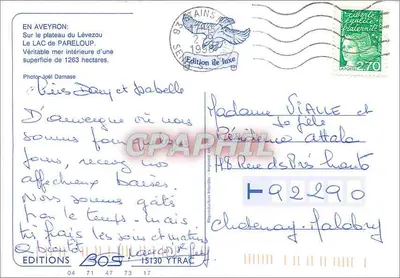 EN AVEYRON:
Sur le plateau du Lévezou
Le LAC de PARELOUP.
Véritable mer intérieure d'une
superficie de 1263 hectares.
Photo Joël Damase
Edition de luxe
2,70
Chers Dany et Isabelle
D'auvergne où nous
sommes pour
jours, recevez nos
affectueux baisers.
Nous sommes gâtés
par le temps. mais
très frais les soirs et matins
a bientôt
Madame VIALLE et
sa fille
Résidence Attala
148 Rue des Prés hauts
92290
Chatenay-Malabry
CPAPHIL
EDITIONS BOS 15130 YTRAC
04 71 47 73 17